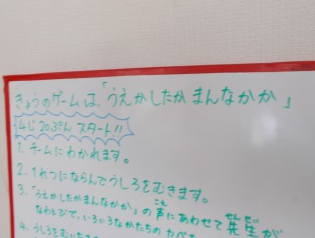 きょうのゲームは、「うえかしたか まんなかか」
4じ 20ぷん スタート!!
1. チームにわかれます。
2. 1れつにならんでうしろをむきます。
3. 「うえかしたかまんなかか」の声にあわせて先生が
こえ せんせい
なわとびで、いろいろなかたちの
4. うしろをむいた